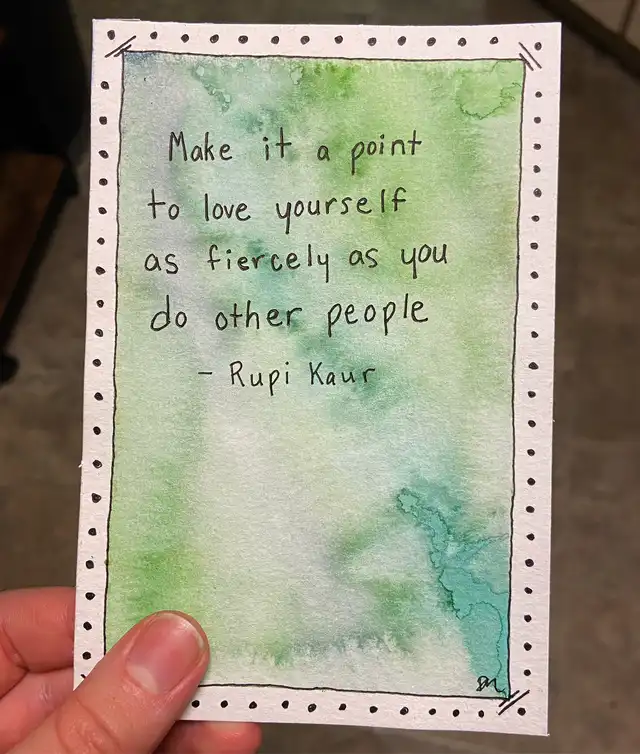 Make it a point
to love yourself
as fiercely as you
do other people
- Rupi Kaur